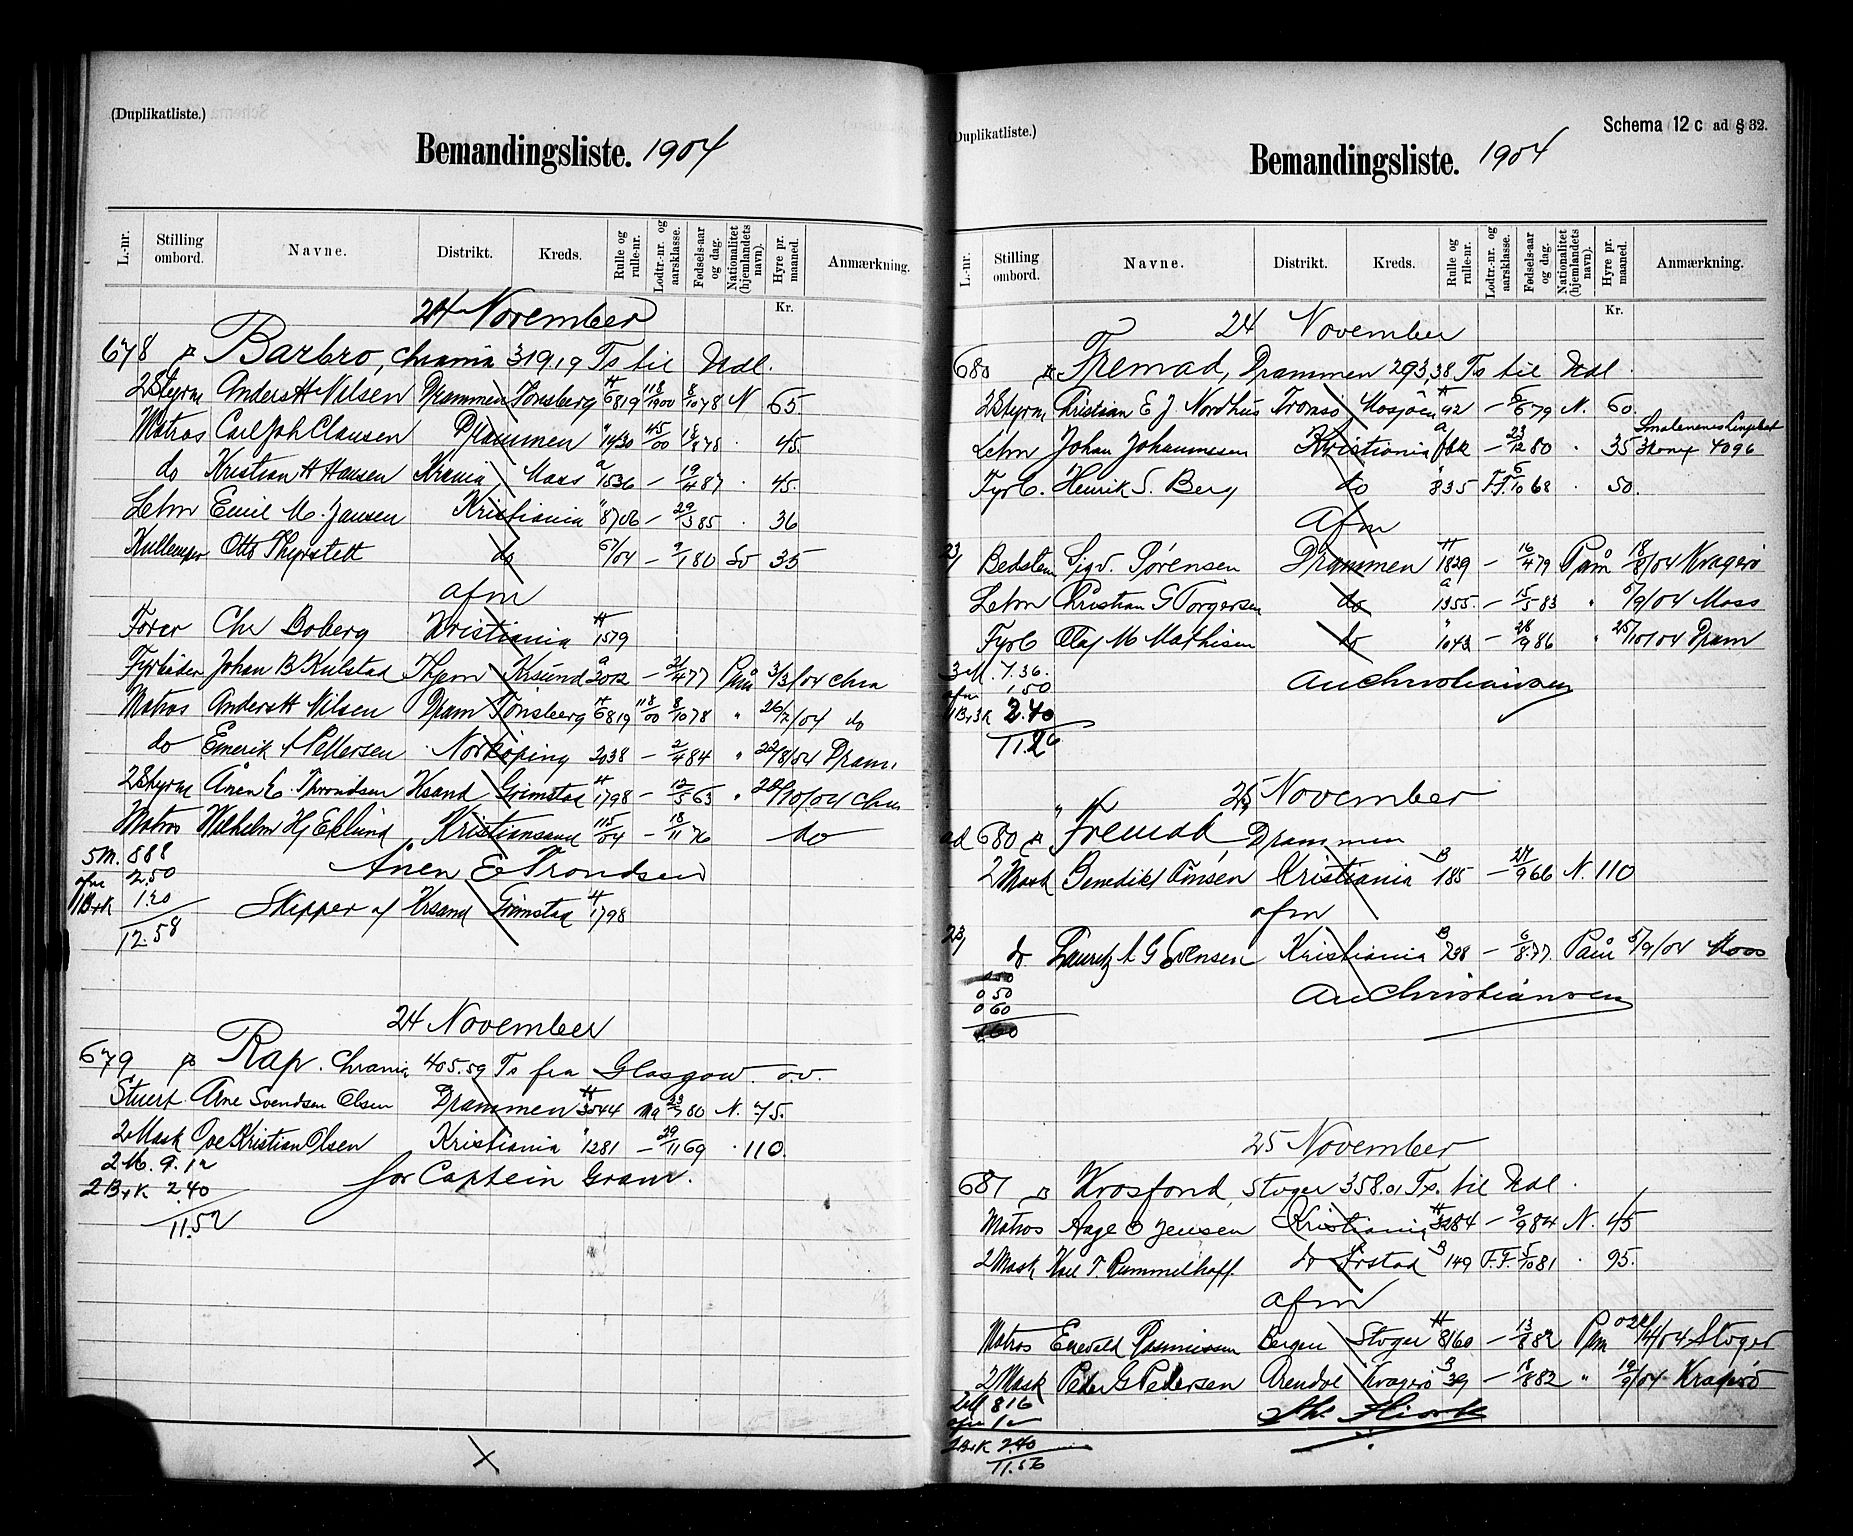 (Duplikatliste.)
Bemandingsliste. 1904
L.-nr. Stilling ombord. Navne. Distrikt. Kreds. Rulle og rulle-nr. Lodtr.-nr. og aarsklasse. Fødsels-aar og dag. Nationalitet (hjemlandets navn). Hyre pr. maaned. Anmærkning.
Kr.
24 November
678 Barbro, Chrania 319,19 Ts til Udl.
2Styrm Anders H Nilsen Drammen Tönsberg H 6819 118/1900 8/10 78 N 65.
Matros Carl Joh Clausen Drammen " 1430 45/00 78 . 45.
do Kristian H Hansen Krania Moss a 1536 – 19/4 87 . 45.
Letm Emil M. Jansen Kristiania " 8706 – 29/3 85 . 36
Kullemper Otto Thyrstett do 67/04 – 9/1 80 Sv 35
afm
Fører Chr Boberg Kristiania H 1579
Fyrböder Johan B Kulstad Thjem Krsund a 2002 – 21/4 77 Paam 3/3/04 Chra
Matros Anders H Nilsen Dram Tönsberg H 6819 118/00 8/10 78 " 26/7/04 do
do Emerik A Pettersen Norköping 2038 – 2/4 84 " 22/8/04 Dram.
2Styrm Ånen E. Throndsen Ksand Grimstad H 1798 – 12/5 63 " 20/10/04 Chra
Matros Wilhelm Hj Eklund Kristiansand 115/04 – 18/11 76 do
5 M. 888
afm 2.50 Ånen E Trondsen
1B+K 1.20 Skipper af Krsand Grimstad H 1798
12.58
24 November
679 Rap. Chrania 405.59 Ts fra Glasgow o.v.
Stuert Arne Svendsen Olsen Drammen H 3544 Ug 23/7 80 N. 75.
2Mask Ove Kristian Olsen Kristiania " 1281 – 29/11 69 . 110.
2 M. 9.12 for Captein Gram.
2B+K 2.40
11.52
(Duplikatliste.)
Schema 12 c ad § 32.
Bemandingsliste. 1904
L.-nr. Stilling ombord. Navne. Distrikt. Kreds. Rulle og rulle-nr. Lodtr.-nr. og aarsklasse. Fødsels-aar og dag. Nationalitet (hjemlandets navn). Hyre pr. maaned. Anmærkning.
Kr.
24 November
680 Fremad, Drammen 293,38 Ts til Udl.
2Styrm Christian E J Nordhus Tromsö Mosjöen H 92 – 6 79 N. 60.
Letm Johan Johannesen Kristiania a – 23/12 80 . 35 4096
Fyrb. Henrik S. Berg do " 835 F.F. 6/10 68 . 50.
afm
23/ Bedstem Sigv. Sørensen Drammen H 1829 – 16/4 79 Paam 18/8/04 Kragerö
Letm Christian G Torgersen do a 1355. – 15/5 83 " 6/9/04 Moss
Fyrb Olaf M Mathisen do " 1043 – 28/9 86 " 25/10/04 Dram
3 M. 7.36.
afm 1,50 AuChristiansen
1B+3K 2.40
11.26
25 November
ad 680 Fremad Drammen
2 Mask Benedikt Tönsen Kristiania B 185 – 27/9 66 N. 110
afm
23/ do Lauritz A G Svensen Kristiania B 738 – 6/8 77 Paam 6/9/04 Moss
0 50 AuChristiansen
0 60
25 November
681 Krosfond, Stvger 358.01 Ts. til Udl.
Matros Aage O Jensen Kristiania H 3284 – 9/9 84 N. 45
2 Mask Karl T. Rummelhoff. do Örstad B 149 F.F. 5/10 81 . 95.
afm
Matros Enevald Rasmussen Bergen Stvger H 8160 – 13/8 82 Paam /4/04 Stvger
2 Mask Peder G Pedersen Arendal Kragerö B 39 – 18/8 82 " 19/9/04 Kragerö
2 M 816
afm 1
2B+K 2.40
11.56